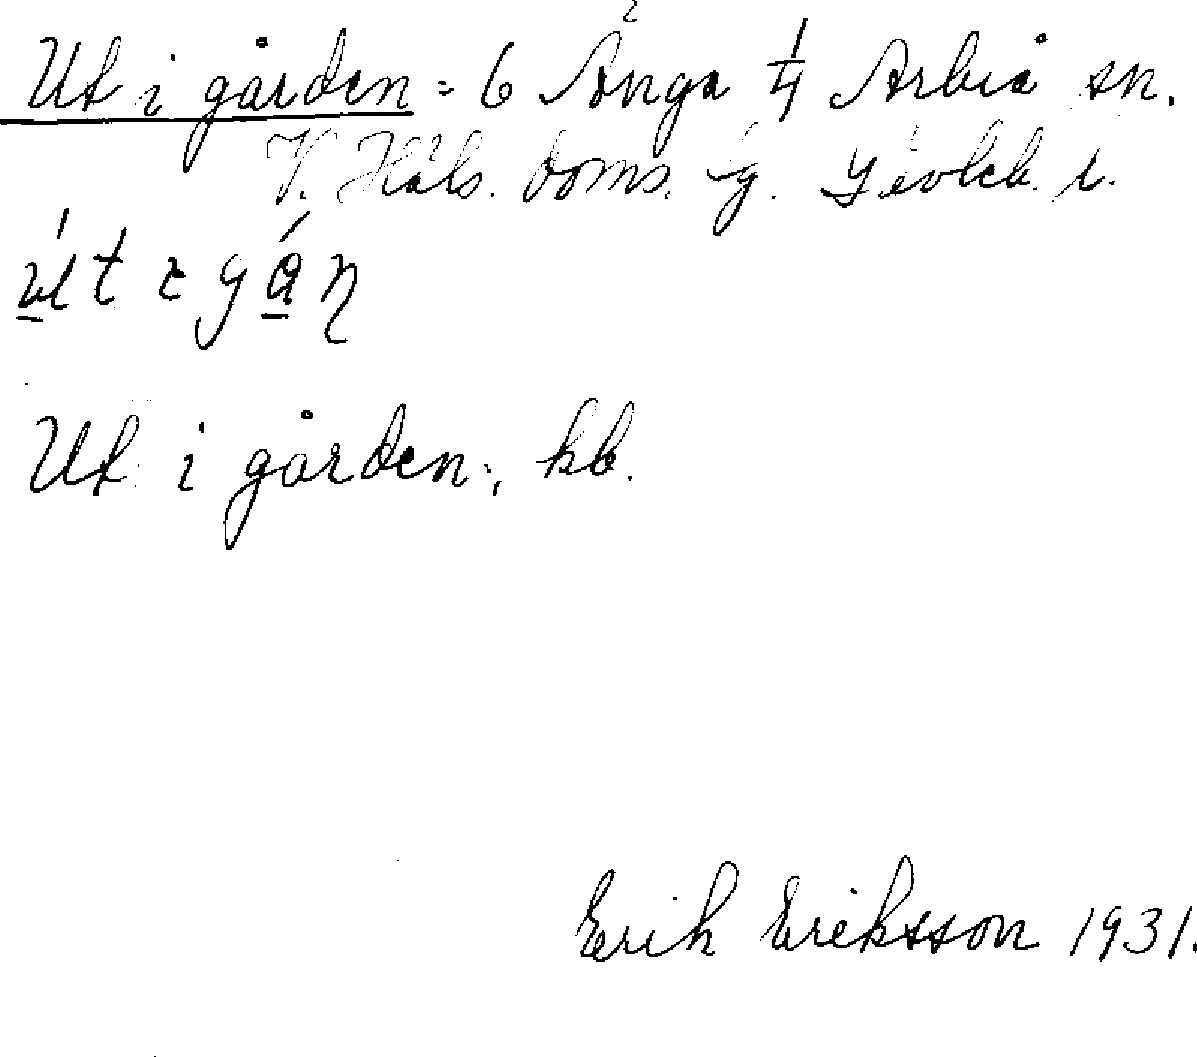 Ut i gården = 6 Änga 1/4 Arbrå sn.
V. Häls. doms. g. Gävleb. l.
Ut i gården, kb.
Erik Eriksson 1931.